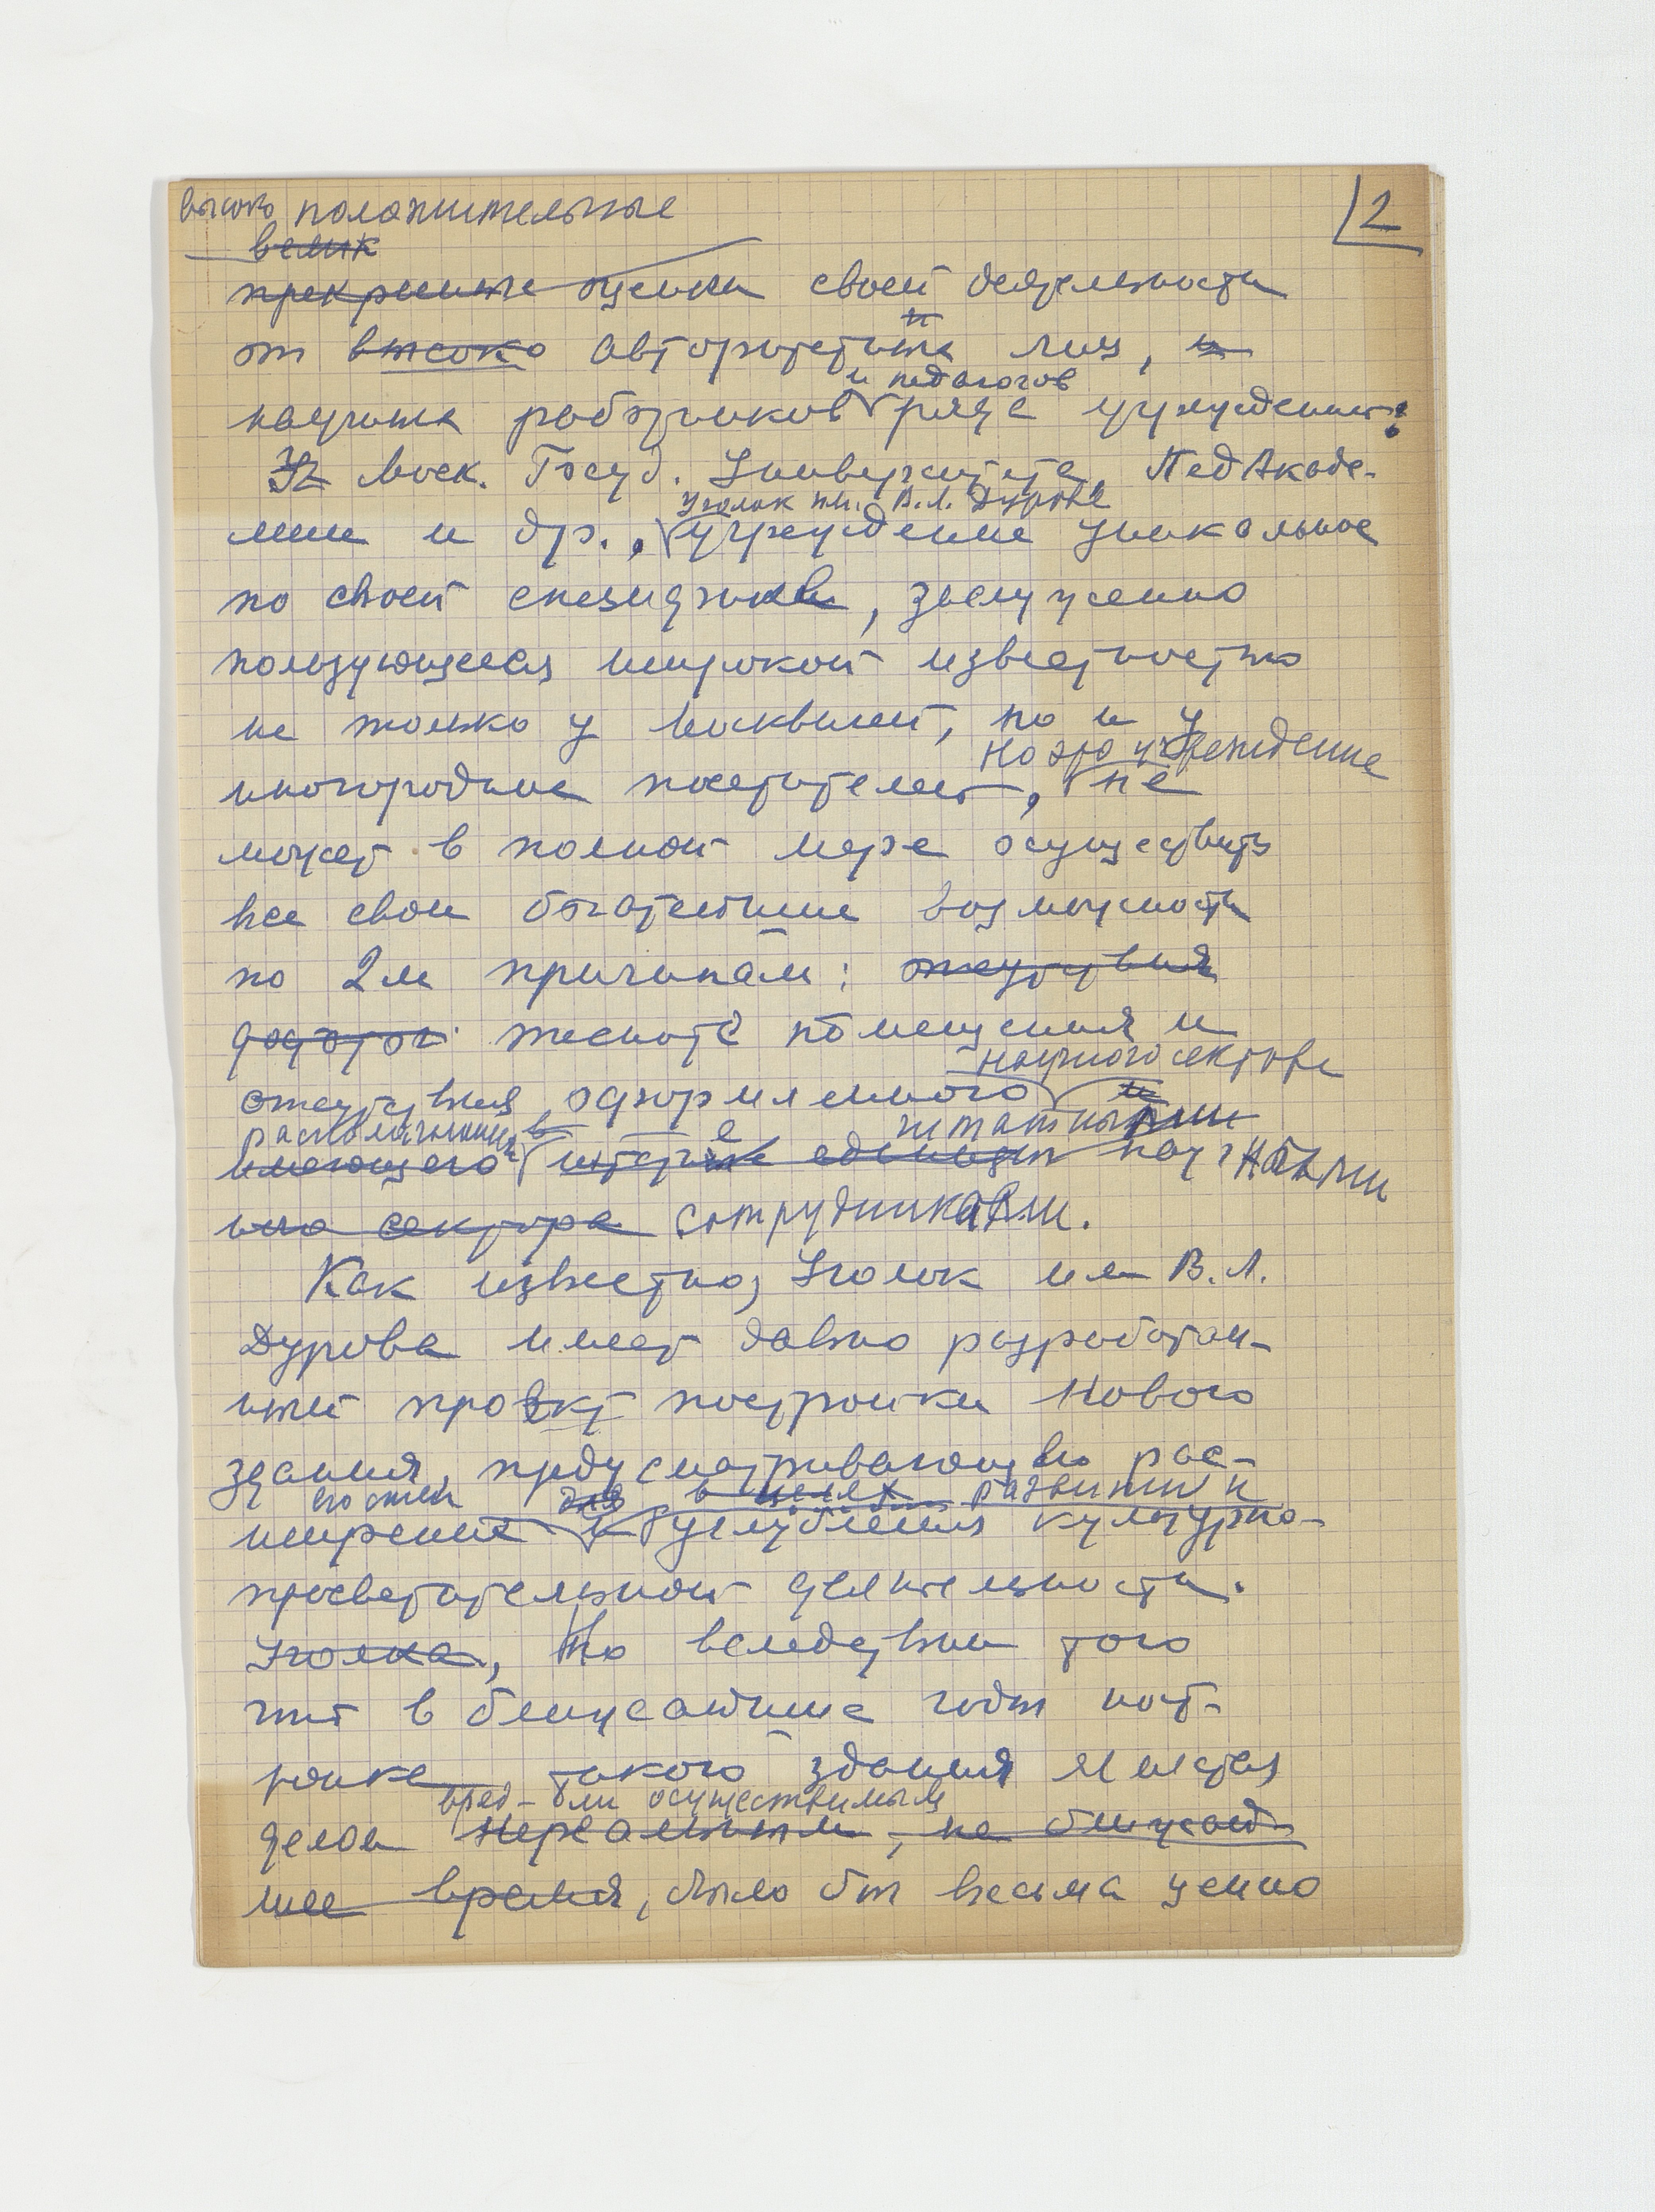 2
высоко положительные
велик
прекрасные оценки своей деятельности
от высоко авторитетных лиц, и
и педагогов
научных работников ряда учреждений:
Моск. Госуд. Университета, ПедАкаде-
Уголок им. В.Л. Дурова
мии и др., учреждение уникальное
по своей специфике, заслуженно
пользующееся широкой известностью
не только у москвичей, но и у
Но это учреждение
иногородних посетителей, не
может в полной мере осуществить
все свои богатейшие возможности
по 2м причинам: отсутствия
тесноте помещения и
научного сектора
отсутствия оформленного
располагающего штатными
имеющего штатные единицы научными
сектора сотрудниками.
Как известно, Уголок им В.Л.
Дурова имеет давно разработан-
ный проэкт постройки нового
здания, предусматривающего рас-
для в целях развития и
ширение углубления культурно-
просветительной деятельности.
Уголка, Но вследствии того
что в ближайшие годы пост-
ройка такого здания является
вряд-ли осуществимым
делом нереальным, на ближай-
шее время, было бы весьма ценно